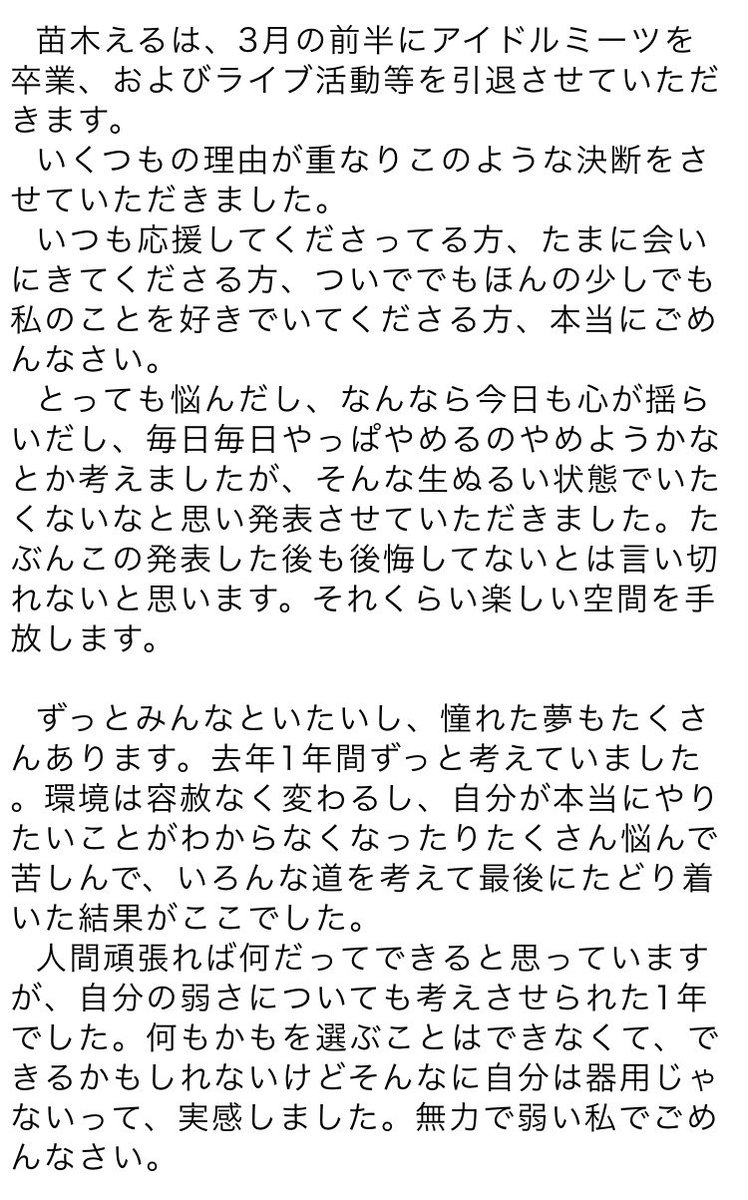 苗木えるは、3月の前半にアイドルミーツを
卒業、およびライブ活動等を引退させていただ
きます。
いくつもの理由が重なりこのような決断をさ
せていただきました。
いつも応援してくださってる方、たまに会い
にきてくださる方、ついででもほんの少しでも
私のことを好きでいてくださる方、本当にごめ
んなさい。
とっても悩んだし、なんなら今日も心が揺ら
いだし、毎日毎日やっぱやめるのやめようかな
とか考えましたが、そんな生ぬるい状態でいた
くないなと思い発表させていただきました。た
ぶんこの発表した後も後悔してないとは言い切
れないと思います。それくらい楽しい空間を手
放します。
ずっとみんなといたいし、憧れた夢もたくさ
んあります。去年1年間ずっと考えていました
。環境は容赦なく変わるし、自分が本当にやり
たいことがわからなくなったりたくさん悩んで
苦しんで、いろんな道を考えて最後にたどり着
いた結果がここでした。
人間頑張れば何だってできると思っています
が、自分の弱さについても考えさせられた1年
でした。何もかもを選ぶことはできなくて、で
きるかもしれないけどそんなに自分は器用じゃ
ないって、実感しました。無力で弱い私でごめ
んなさい。